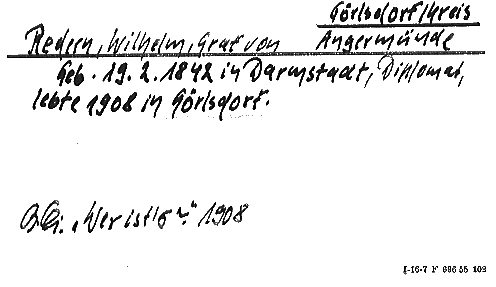 Görlsdorf/Kreis
Redern, Wilhelm, Graf von Angermünde
Geb. 19. 2. 1842 in Darmstadt, Diplomat,
lebte 1908 in Görlsdorf.
"Wer ist's?" 1908
I-16-7 F 686 55 102